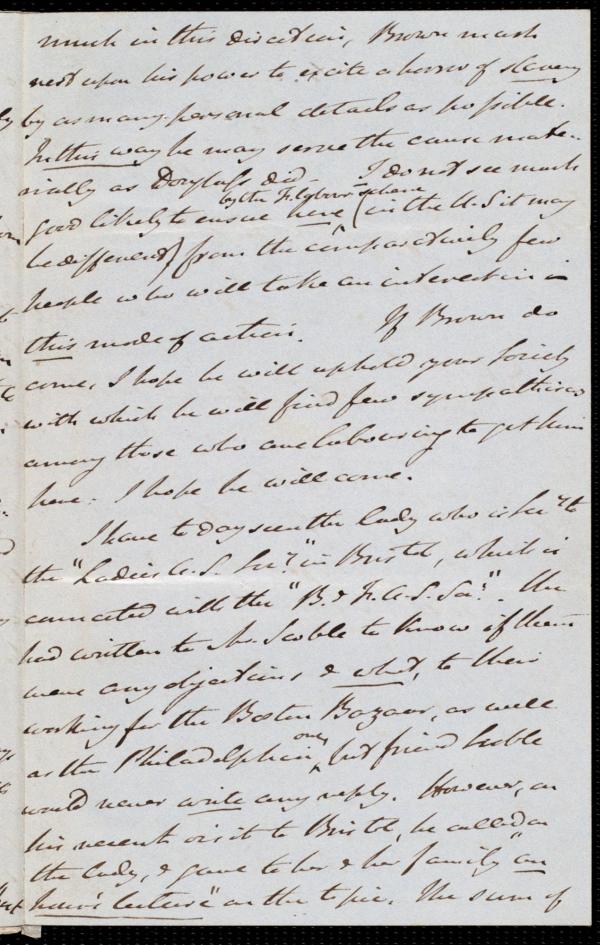 much in this direction, Brown must
rest upon his power to excite a horror of slavery
by as many personal details as possible.
In this way he may serve the cause mate-
rially as Douglass did. I do not see much
by the Fugitives' scheme
good likely to ensue here (in the U.S. it may
be different) from the comparatively few
people who will take an interest in
this mode of action. If Brown do
come, I hope he will uphold your Society
with which he will find few sympathisers
among those who are labouring to get him
here. I hope he will come.
I have to day seen the lady who is Secy to
the "Ladies A.S. Socy" in Bristol, which is
connected with the "B. & F. A. S. Socy". She
had written to Mr. Scoble to know if there
were any objections & what, to their
working for the Boston Bazaar, as well
as the Philadelphia one, but friend Scoble
would never write any reply. However, on
his recent visit to Bristol, he called on
the lady, & gave to her & her family "an
hour's lecture" on the topic. The sum of